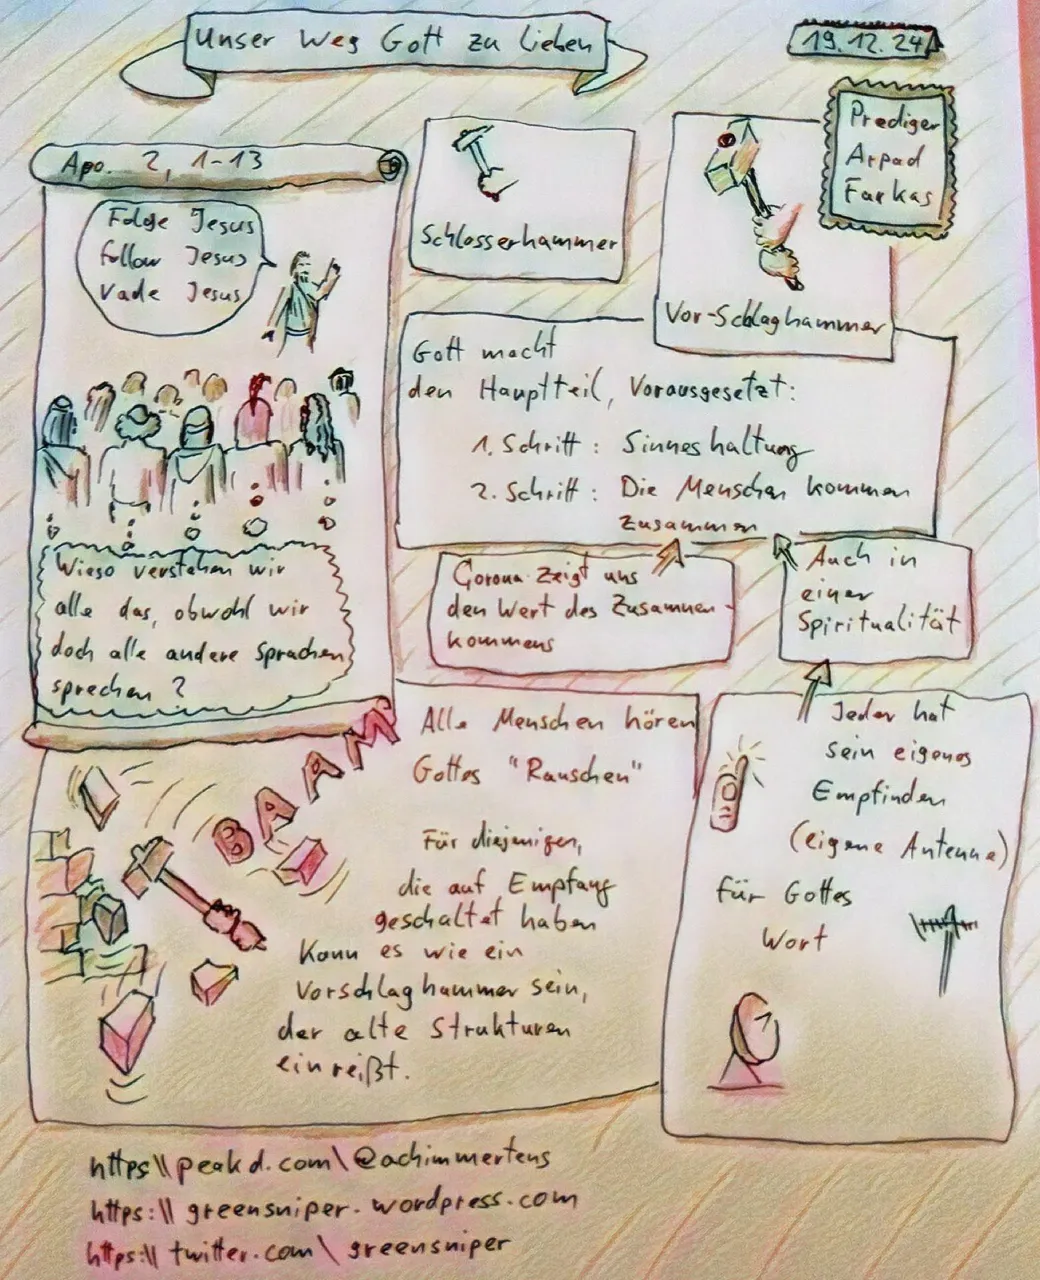 Unser Weg Gott zu Lieben
19.12.24
Prediger
Arpad
Farkas
Apo. 2, 1-13
Folge Jesus
follow Jesus
Vade Jesus
Wieso verstehen wir
alle das, obwohl wir
doch alle andere Sprachen
sprechen ?
Schlosserhammer
Vor-Schlaghammer
Gott macht
den Hauptteil, Vorausgesetzt:
1. Schritt : Sinneshaltung
2. Schritt : Die Menschen kommen
zusammen
Corona zeigt uns
den Wert des Zusammen-
kommens
Auch in
einer
Spiritualität
Jeder hat
sein eigenes
Empfinden
(eigene Antenne)
für Gottes
Wort
BAAM
Alle Menschen hören
Gottes "Rauschen"
Für diejenigen,
die auf Empfang
geschaltet haben
Kann es wie ein
Vorschlaghammer sein,
der alte Strukturen
einreißt.
https\\peakd.com\@achimmertens
https:\\greensniper.wordpress.com
https:\\twitter.com\greensniper